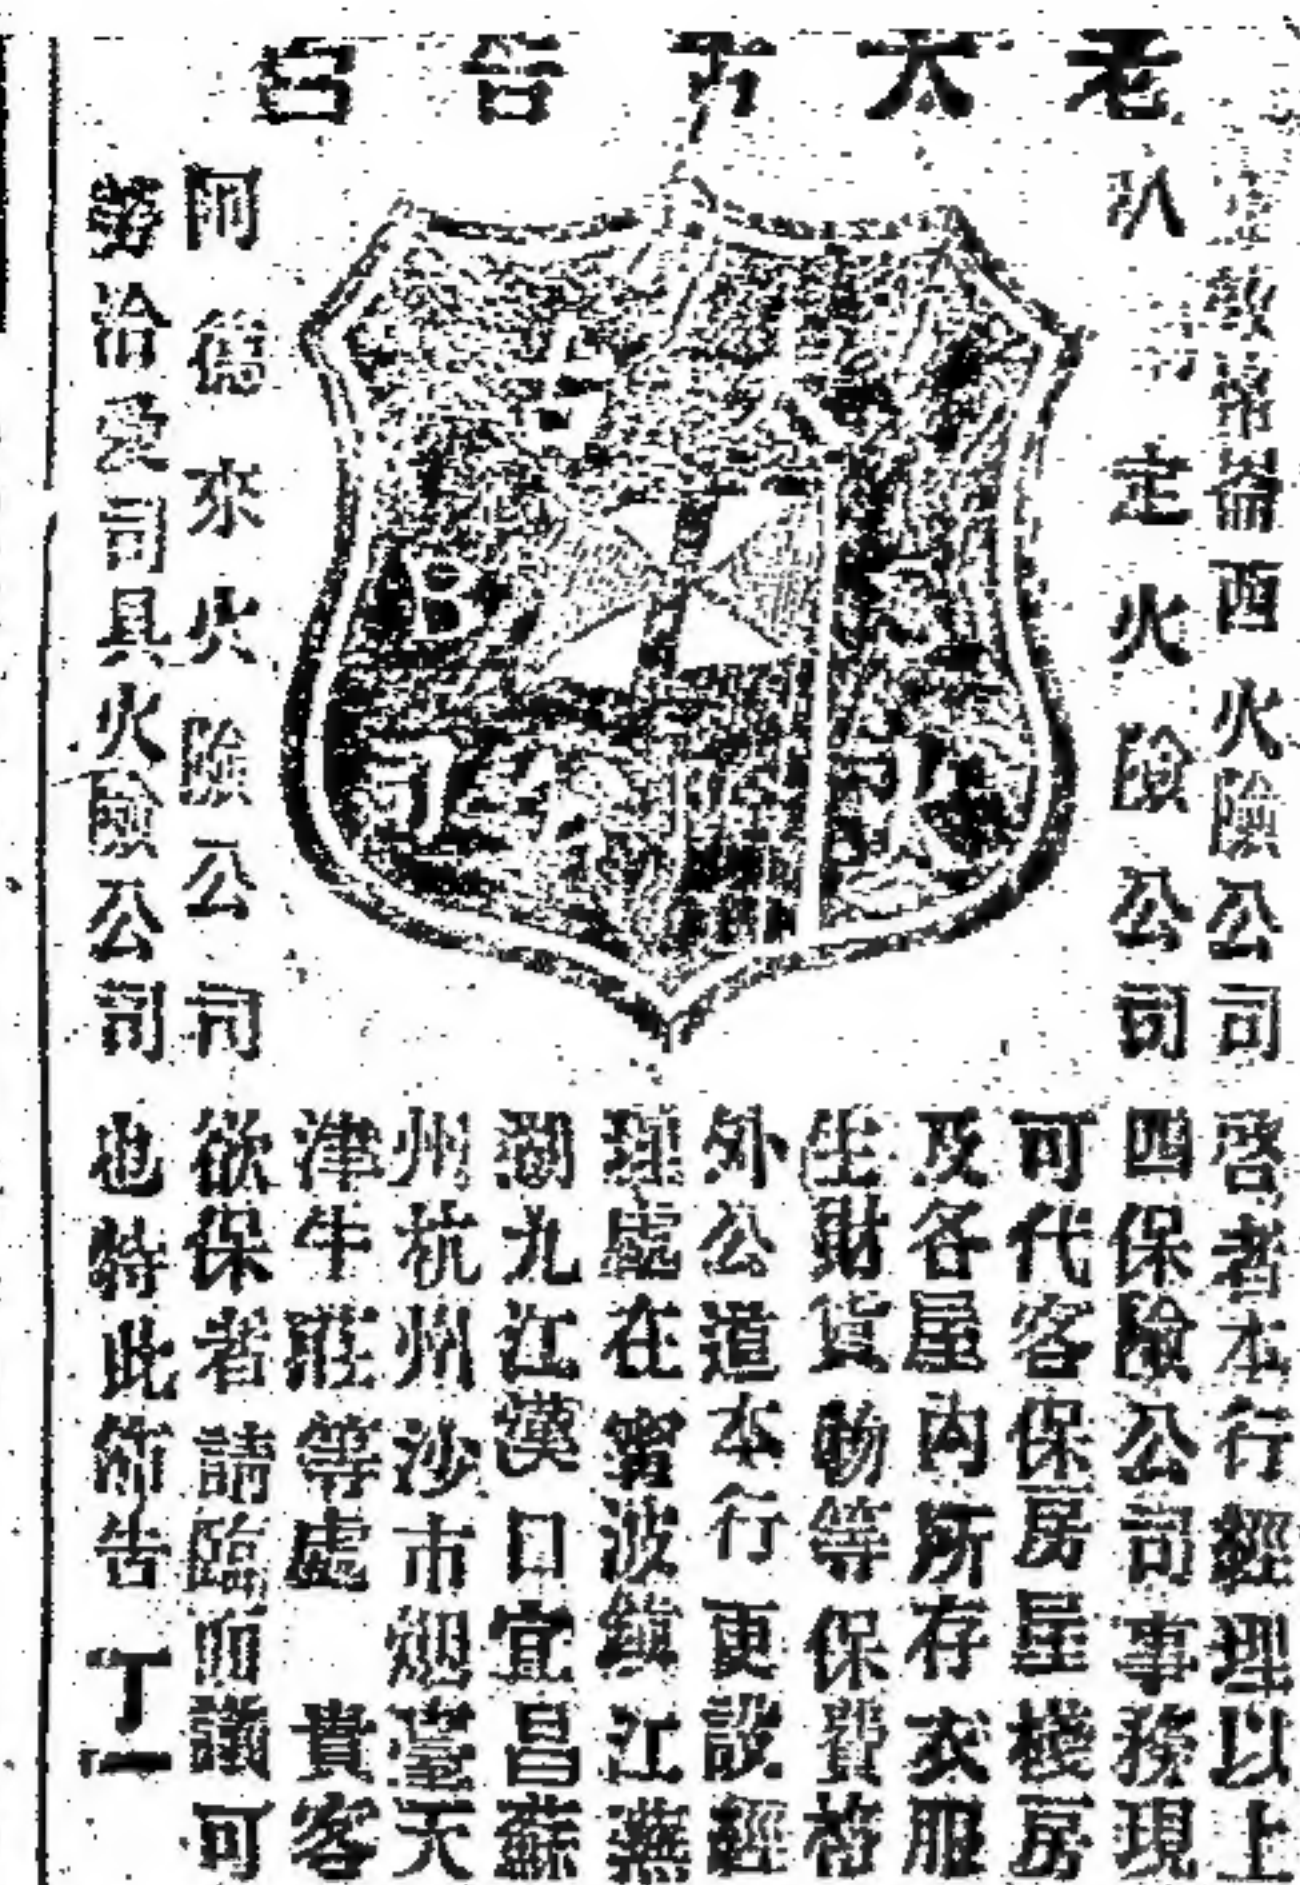 老太古告白
火險公司
定火險公司
太古
B S
火險公司
阿德來火險公司
洽愛司具火險公司
啓者本行經理以上
四保險公司事務現
可代客保房屋棧房
及各屋內所存衣服
生財貨物等保費格
外公道本行更設經
理處在甯波鎮江蕪
湖九江漢口宜昌蘇
州杭州沙市烟臺天
津牛莊等處 貴客
欲保者請臨面議可
也特此佈告 丁一